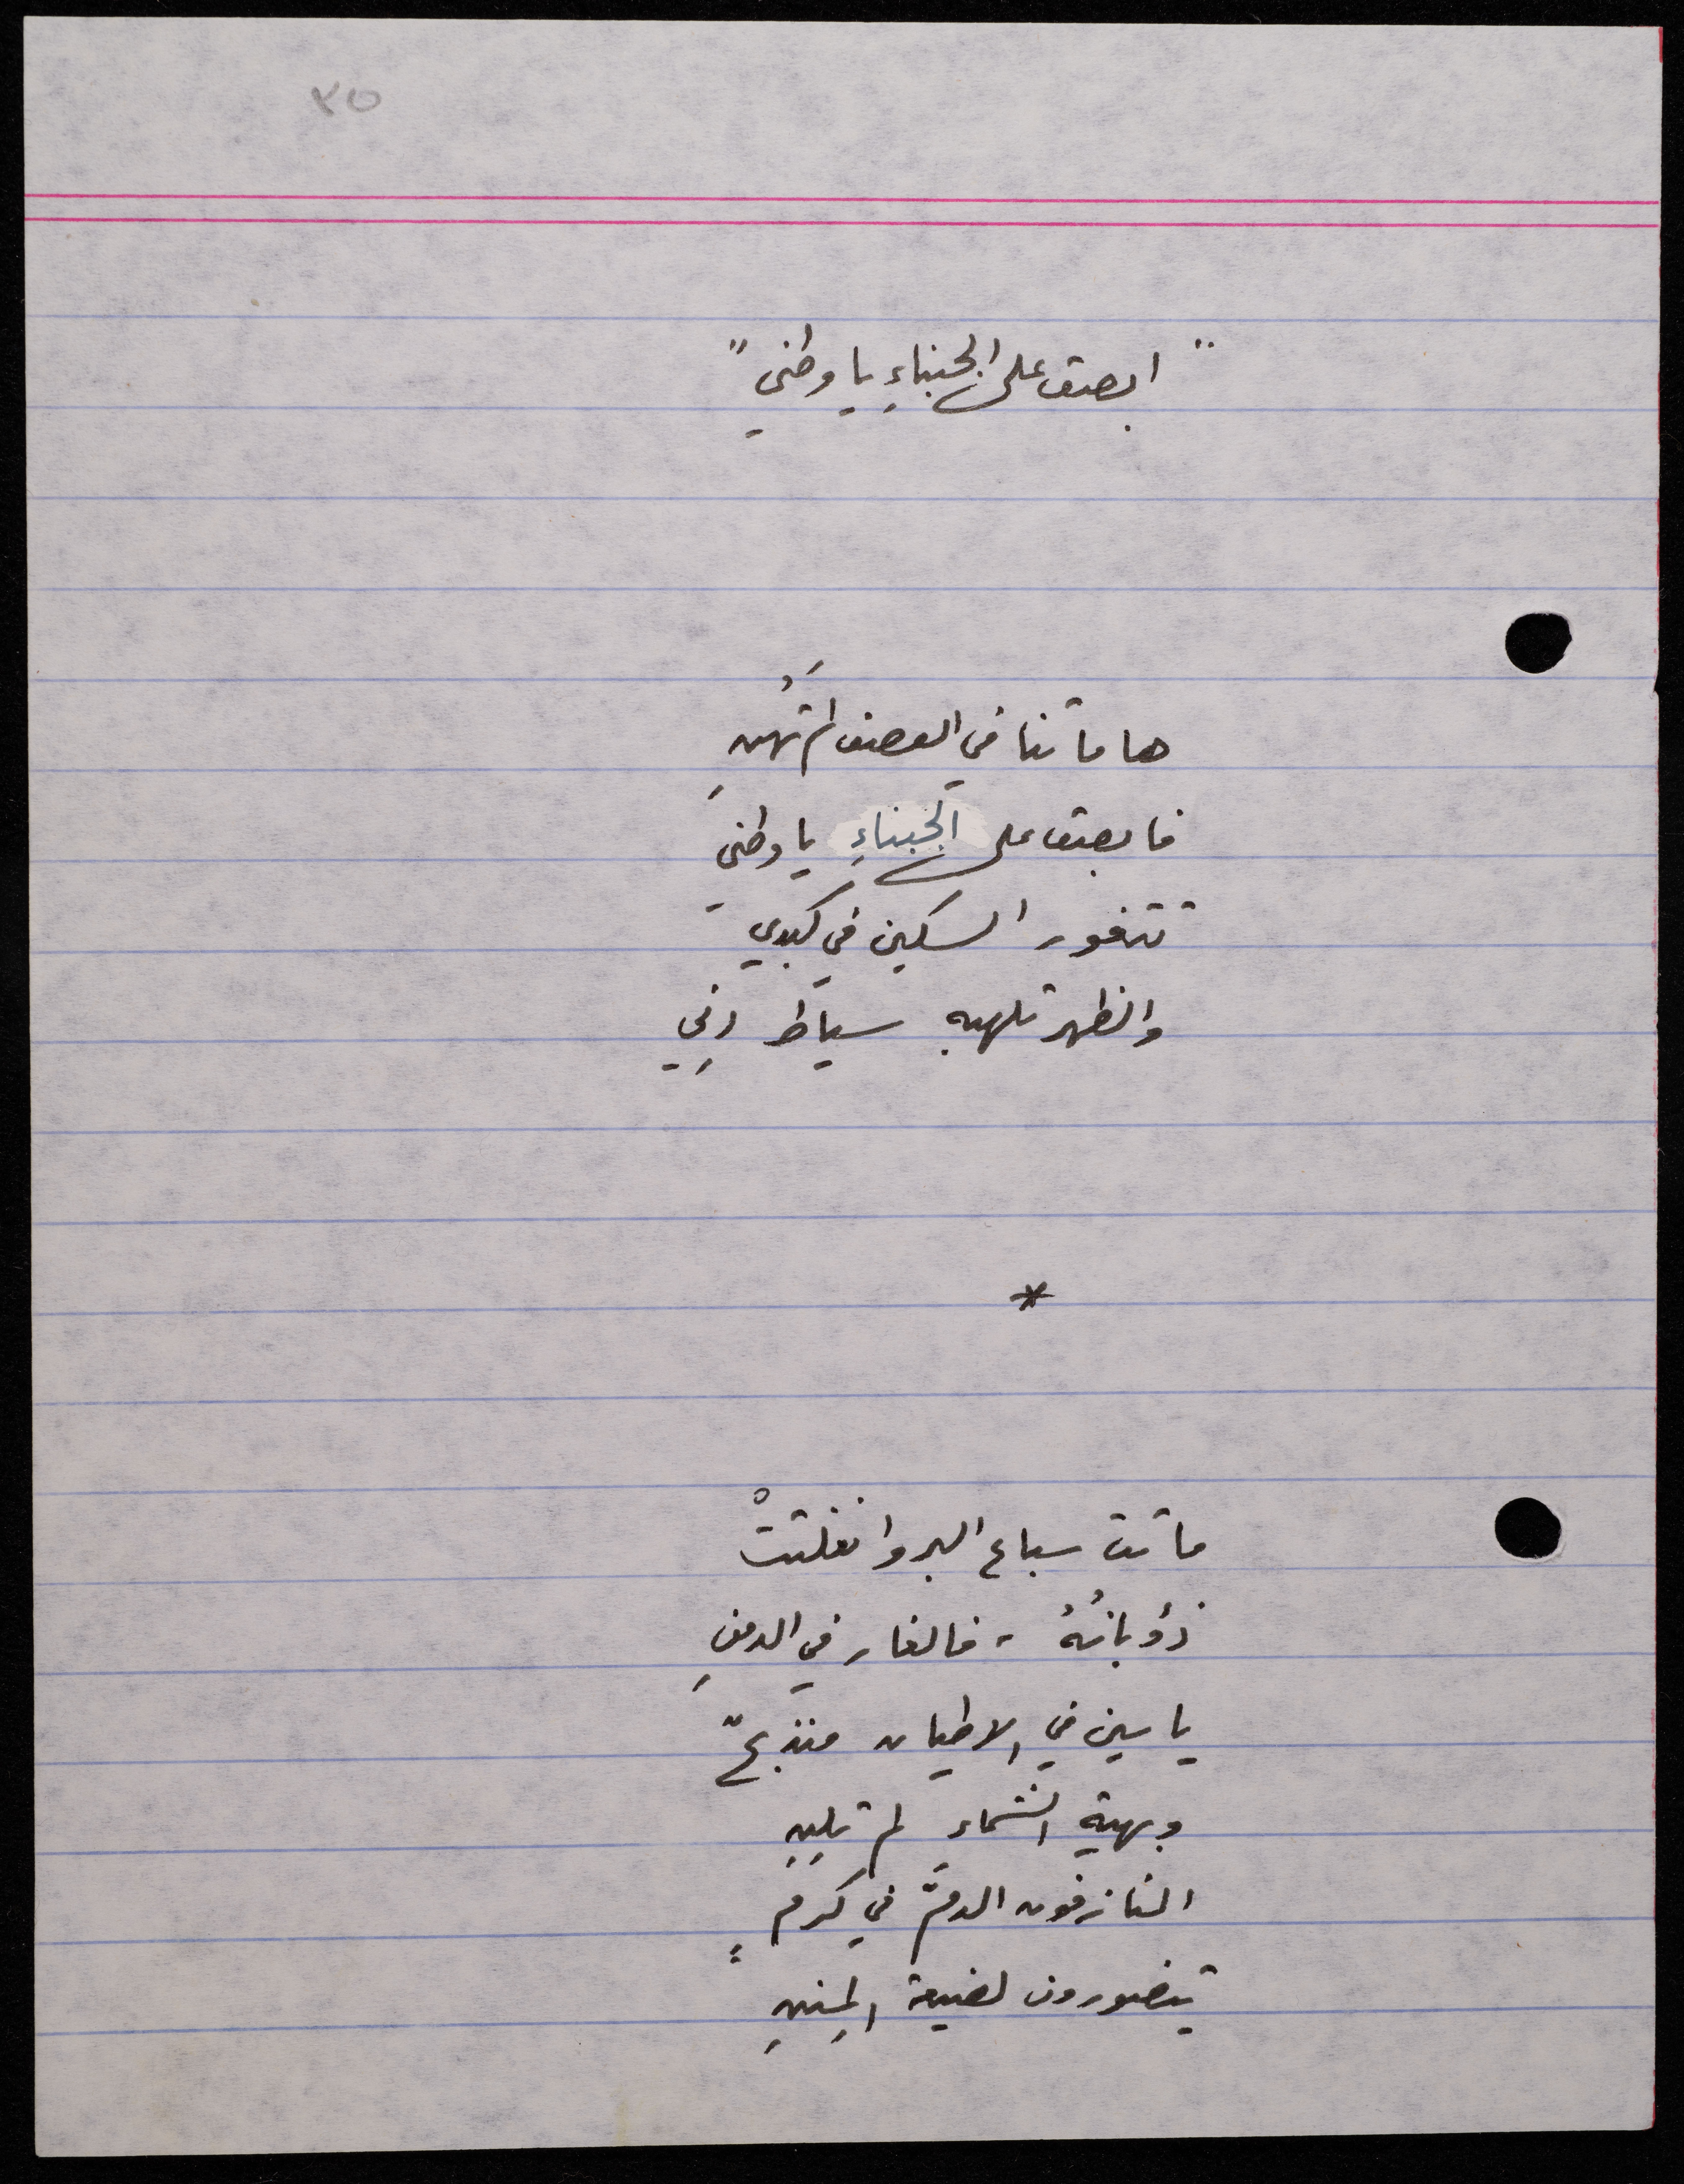 ٣٥
"ابصق على الجبناءِ يا وطني"
هاماتنا في العصف لم تَهُنِ
فابصق على الجبناءِ يا وطني
تتغور السكين في كبدي
والظهر تلهبه سياط دني
*
ماتت سباع البر وانفلتتْ
ذؤبانُهُ، فالغار في الدمنِ
ياسين في الاطيان منذبحٌ
وبهية الشماء لم تلِنِ
النازفون الدمَّ في كرمٍ
يتضورون لضيعة المِننِ